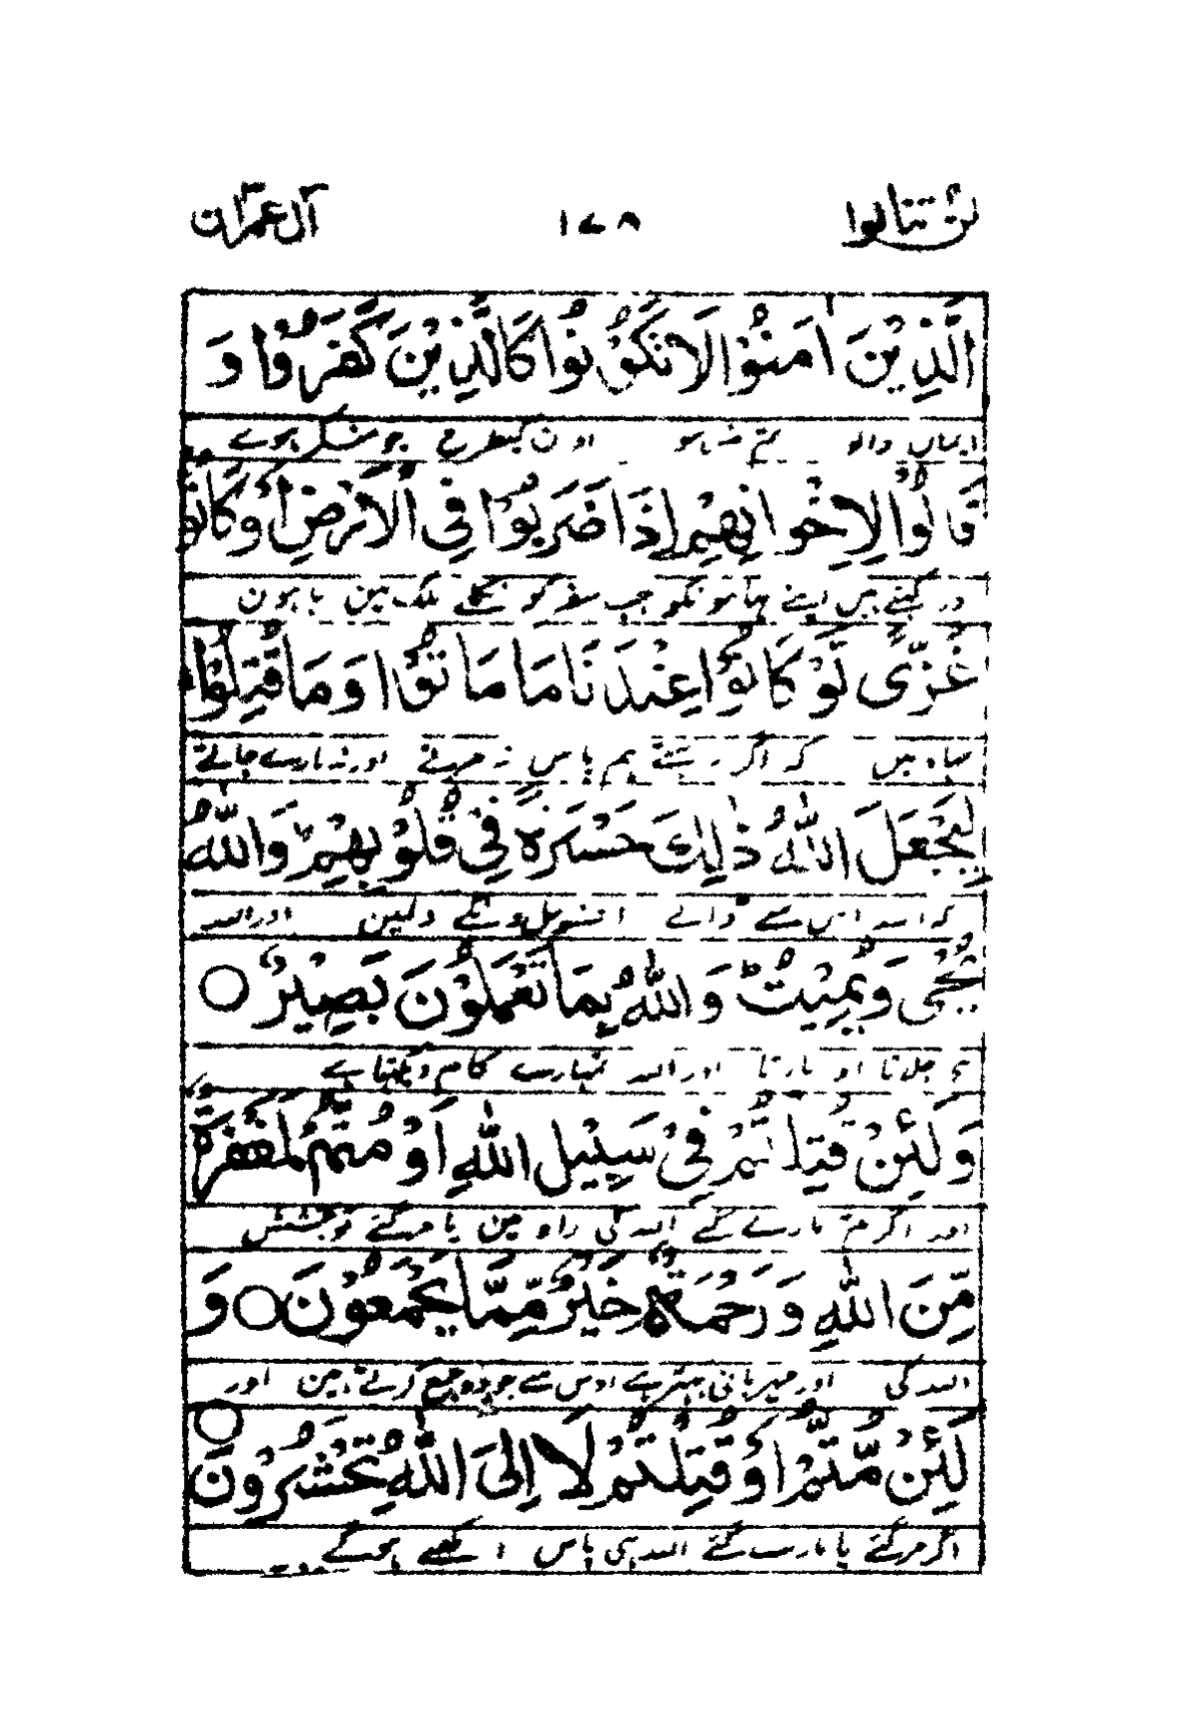 لن تنالوا ١٧٨ آل عمران
الَّذِيْنَ اٰمَنُوْا لَا تَكُوْنُوْا كَالَّذِيْنَ كَفَرُوْا وَ
ايمان والو تم نہ ہو اون كيطرح جو منكر ہوے
قَالُوْا لِاِخْوَانِهِمْ اِذَا ضَرَبُوْا فِى الْاَرْضِ اَوْ كَانُوْا
كہتے ہيں اپنے بهائونكو جب سفر كو نكلے ملك مين يا ہون
غُزًّى لَّوْ كَانُوْا عِنْدَنَا مَا مَاتُوْا وَ مَا قُتِلُوْا
جہاد ميں كہ اگر رہتے ہم پاس نہ مرتے اور نہ مارے جاتے
لِيَجْعَلَ اللّٰهُ ذٰلِكَ حَسْرَةً فِىْ قُلُوْبِهِمْ وَاللّٰهُ
كہ اللہ اس سے ڈالے افسوس اونكے دلمين اور اللہ
يُحْىٖ وَيُمِيْتُ ؕ وَاللّٰهُ بِمَا تَعْمَلُوْنَ بَصِيْرٌ ○
ہے جلاتا اور مارتا اور اللہ تمہارے كام ديكهتا ہے
وَلَئِنْ قُتِلْتُمْ فِىْ سَبِيْلِ اللّٰهِ اَوْ مُتُّمْ لَمَغْفِرَةٌ
اور اگر تم مارے گئے اللہ كى راہ مين يا مر گئے تو بخشش
مِّنَ اللّٰهِ وَرَحْمَةٌ خَيْرٌ مِّمَّا يَجْمَعُوْنَ ○ وَ
اللہ كى اور مہربانى بہتر ہے اوس سے جو وہ جمع كرتے ہين اور
لَئِنْ مُّتُّمْ اَوْ قُتِلْتُمْ لَا اِلَى اللّٰهِ تُحْشَرُوْنَ ○
اگر مر گئے يا مارے گئے اللہ ہى پاس اكٹهے ہوگے